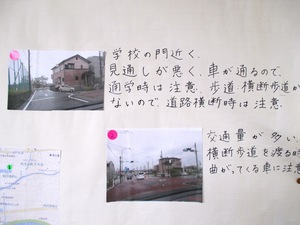 学校の門近く、
見通しが悪く、車が通るので、
通学時は注意、歩道、横断歩道が
ないので、道路横断時は注意.
交通量が多い、
横断歩道を渡る時
曲がってくる車に注意